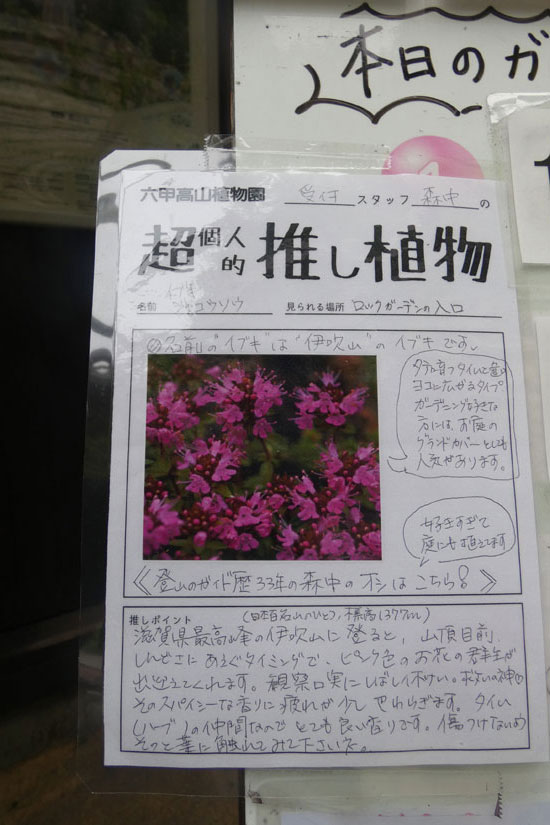 本日のガ
六甲高山植物園 受付 スタッフ 森中 の
超個人的推し植物
名前 イブキジャコウソウ 見られる場所 ロックガーデンの入口
名前の"イブキ"は"伊吹山"のイブキです。
タテに育つタイムと違い
ヨコに広がるタイプ。
ガーデニング好きな
方には、お庭の
グランドカバーとしても
人気があります。
好きすぎて
庭にも植えてます
《登山のガイド歴33年の森中のオシはこちら!》
推しポイント (日本百名山のひとつ、標高1377m)
滋賀県最高峰の伊吹山に登ると、山頂目前、
しんどさにあえぐタイミングで、ピンク色のお花の群生が
出迎えてくれます。観察口実にしばし休けい。救いの神
そのスパイシーな香りに疲れが少しやわらぎます。タイム
(ハーブ)の仲間なのでとても良い香りです。傷つけないよう
そっと葉に触れてみて下さいね。